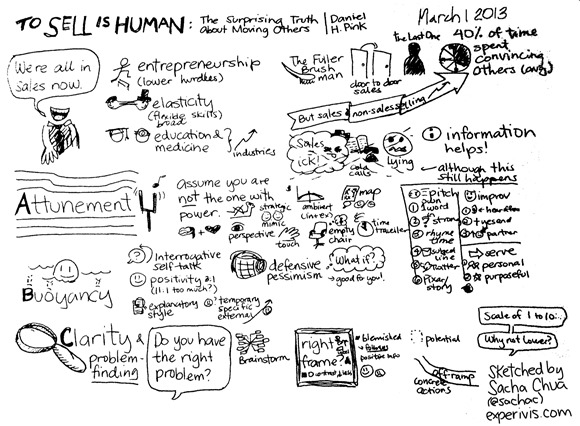 TO SELL IS HUMAN: The Surprising Truth About Moving Others
Daniel H. Pink
March 1 2013
We're all in sales now.
entrepreneurship
(lower hurdles)
elasticity
(flexible skills)
broad
education &
medicine
industries
The Fuller
Brush
man
door to door
sales
the Last One
40% of time
spent
convincing
others (avg)
But sales & non-sales selling
Sales
ick!
cold
calls
lying
information
helps!
although this
still happens
ATTUNEMENT
assume you are
not the one with
power.
perspective
strategic
mimic
touch
ambient
map
empty
chair
time
traveller
pitch
1 word
? strong
rhyme
time
subject
line
twitter
pixar/
story
improv
yes and
partner
serve
personal
purposeful
BUOYANCY
Interrogative
self-talk
positivity 3:1
(11:1 too much?)
explanatory
style
temporary
specific
external
defensive
pessimism
What if?
good for you!
Clarity &
problem-
finding
Do you have
the right
problem?
Brainstorm
right
frame?
blemished
positive info
potential
off-ramp
concrete
actions
Scale of 1 to 10:..
Why not lower?
Sketched by
Sacha Chua
(@sachac)
experivis.com